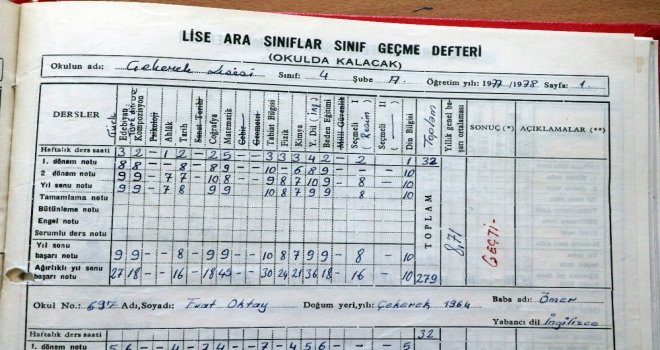 LİSE ARA SINIFLAR SINIF GEÇME DEFTERİ
(OKULDA KALACAK)
Okulun adı: Çekerek Lisesi Sınıf: 4 Şube A Öğretim yılı: 1977/1978 Sayfa: 1
DERSLER Türk Edebiyatı Kompozisyon Psikoloji Ahlâk Tarih Sanat Tarihi Coğrafya Matematik Cebir Geometri Tabiat Bilgisi Fizik Kimya Y. Dil (İng) Beden Eğitimi Millî Güvenlik Seçmeli I (Resim) Seçmeli II Din Bilgisi Toplam Yıllık genel başarı ortalaması SONUÇ (*) AÇIKLAMALAR (**)
Haftalık ders saati 3 2 - 1 2 - 2 5 - - 3 3 3 4 2 - 2 1 32
1. dönem notu 8 8 - - 8 - 8 9 10 - 6 8 9 - - 10
2 dönem notu 9 9 - 7 7 - 10 8 9 8 7 10 9 - 8 - 10
Yıl sonu notu 9 9 - 7 8 9 9 10 8 7 9 9 8 10
Tamamlama notu
Bütünleme notu
Engel notu
Sorumlu ders notu
TOPLAM 8,71 GEÇTİ-
Yıl sonu başarı notu 9 9 - - 8 - 9 9 - - 10 8 7 9 9 - 8 - 10
Ağırlıklı yıl sonu başarı notu 27 18 - - 16 - 18 45 - - 30 24 21 36 18 - 16 - 10 279
Okul No.: 697 Adı, Soyadı: Fuat Oktay Doğum yeri, yılı: Çekerek 1964 Baba adı: Ömer
Yabancı dil İngilizce
Haftalık ders saati 32
1. dönem notu 5 6 - - 4 - 7 4 - - 7 4 5 6 - - - 5